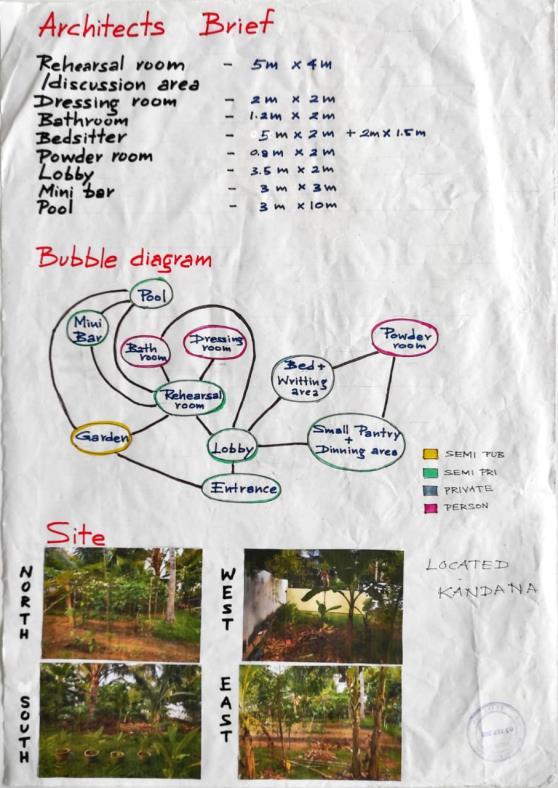 Architects Brief
Rehearsal room - 5m x 4m
/discussion area
Dressing room - 2m x 2m
Bathroom - 1.2m x 2m
Bedsitter - 5m x 2m + 2m x 1.5m
Powder room - 0.9m x 2m
Lobby - 3.5m x 2m
Mini bar - 3m x 3m
Pool - 3m x 10m
Bubble diagram
Pool
Mini
Bar
Bath
room
Dressing
room
Powder
room
Bed +
Writting
area
Rehearsal
room
Garden
Lobby
Small Pantry
+
Dinning area
Entrance
SEMI PUB
SEMI PRI
PRIVATE
PERSON
Site
NORTH
WEST
LOCATED
KANDANA
SOUTH
EAST